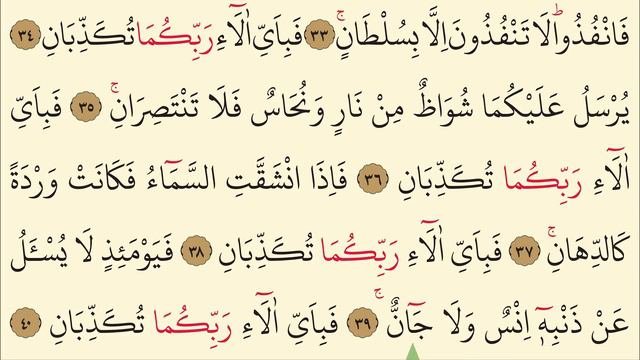 فَانْفُذُواۜ لَا تَنْفُذُونَ اِلَّا بِسُلْطَانٍۚ ﴿٣٣﴾ فَبِاَيِّ اٰلَٓاءِ رَبِّكُمَا تُكَذِّبَانِ ﴿٣٤﴾
يُرْسَلُ عَلَيْكُمَا شُوَاظٌ مِنْ نَارٍ وَنُحَاسٌ فَلَا تَنْتَصِرَانِۚ ﴿٣٥﴾ فَبِاَيِّ
اٰلَٓاءِ رَبِّكُمَا تُكَذِّبَانِ ﴿٣٦﴾ فَاِذَا انْشَقَّتِ السَّمَٓاءُ فَكَانَتْ وَرْدَةً
كَالدِّهَانِۚ ﴿٣٧﴾ فَبِاَيِّ اٰلَٓاءِ رَبِّكُمَا تُكَذِّبَانِ ﴿٣٨﴾ فَيَوْمَئِذٍ لَا يُسْـَٔلُ
عَنْ ذَنْبِه۪ٓ اِنْسٌ وَلَا جَٓانٌّۚ ﴿٣٩﴾ فَبِاَيِّ اٰلَٓاءِ رَبِّكُمَا تُكَذِّبَانِ ﴿٤٠﴾